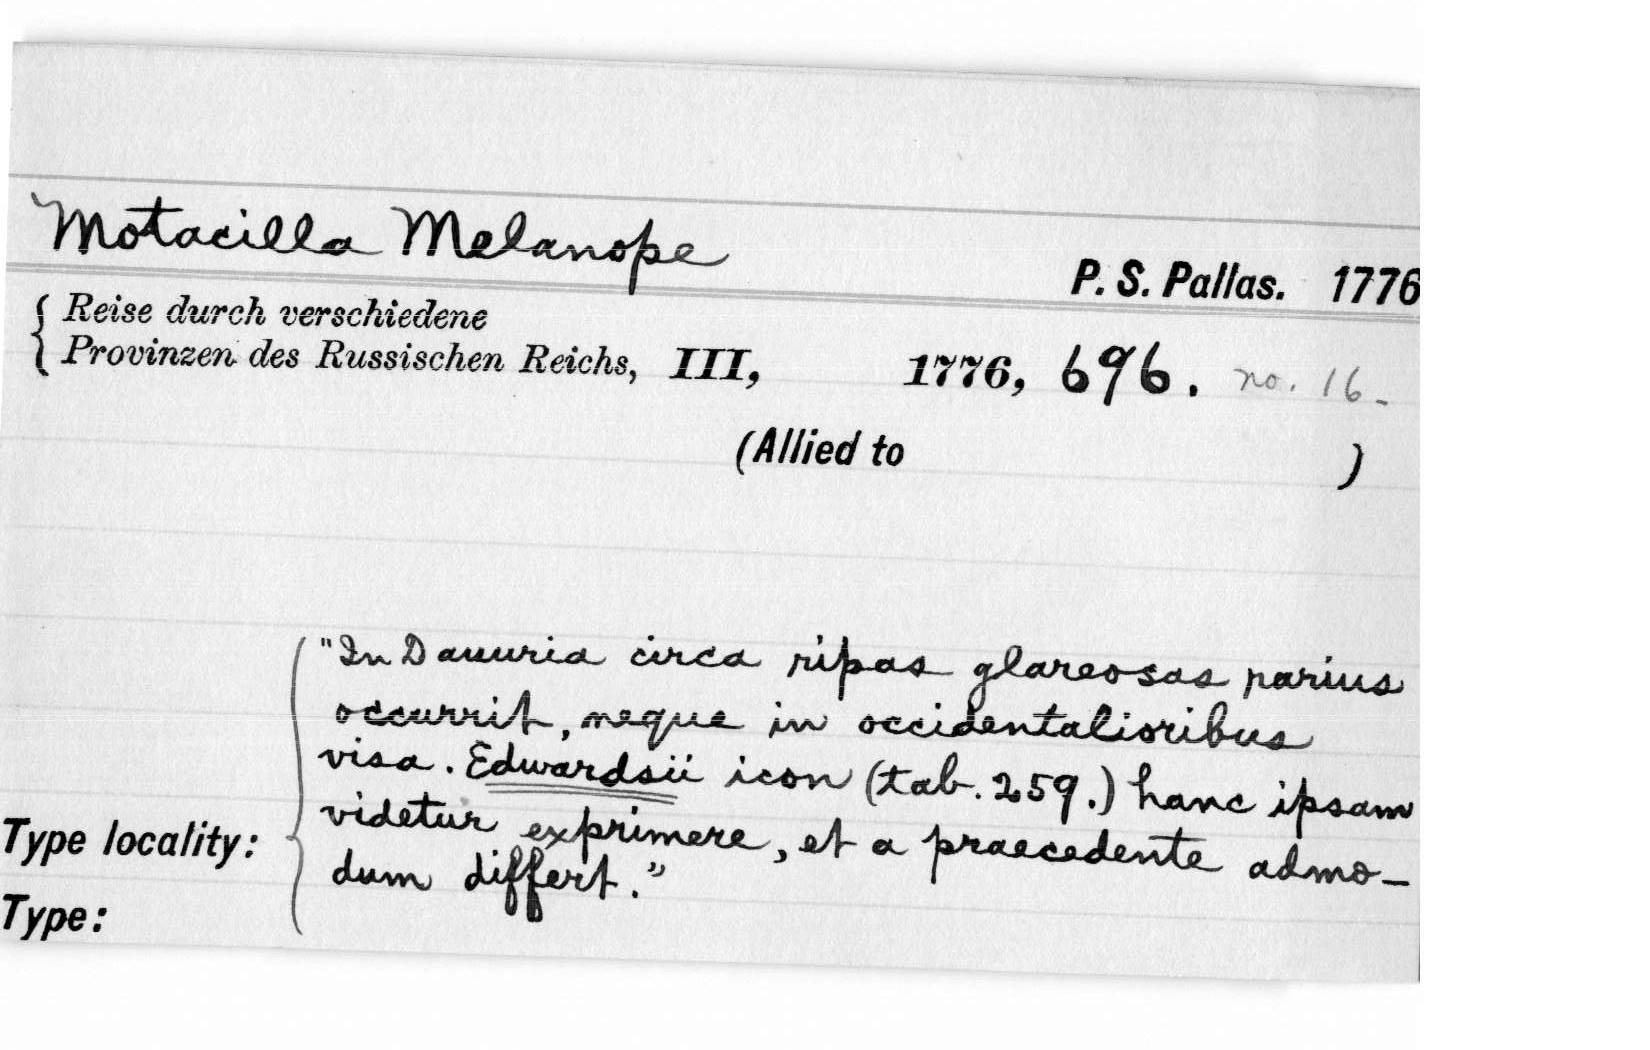 Motacilla Melanope
P. S. Pallas. 1776
Reise durch verschiedene
Provinzen des Russischen Reichs, III, 1776, 696. no. 16-
(Allied to )
"In Dauuria circa ripas glareosas rarius
occurrit, neque in occidentalioribus
visa. Edwardsii icon (tab. 259.) hanc ipsam
videtur exprimere, et a praecedente admo-
dum differt."
Type locality:
Type: